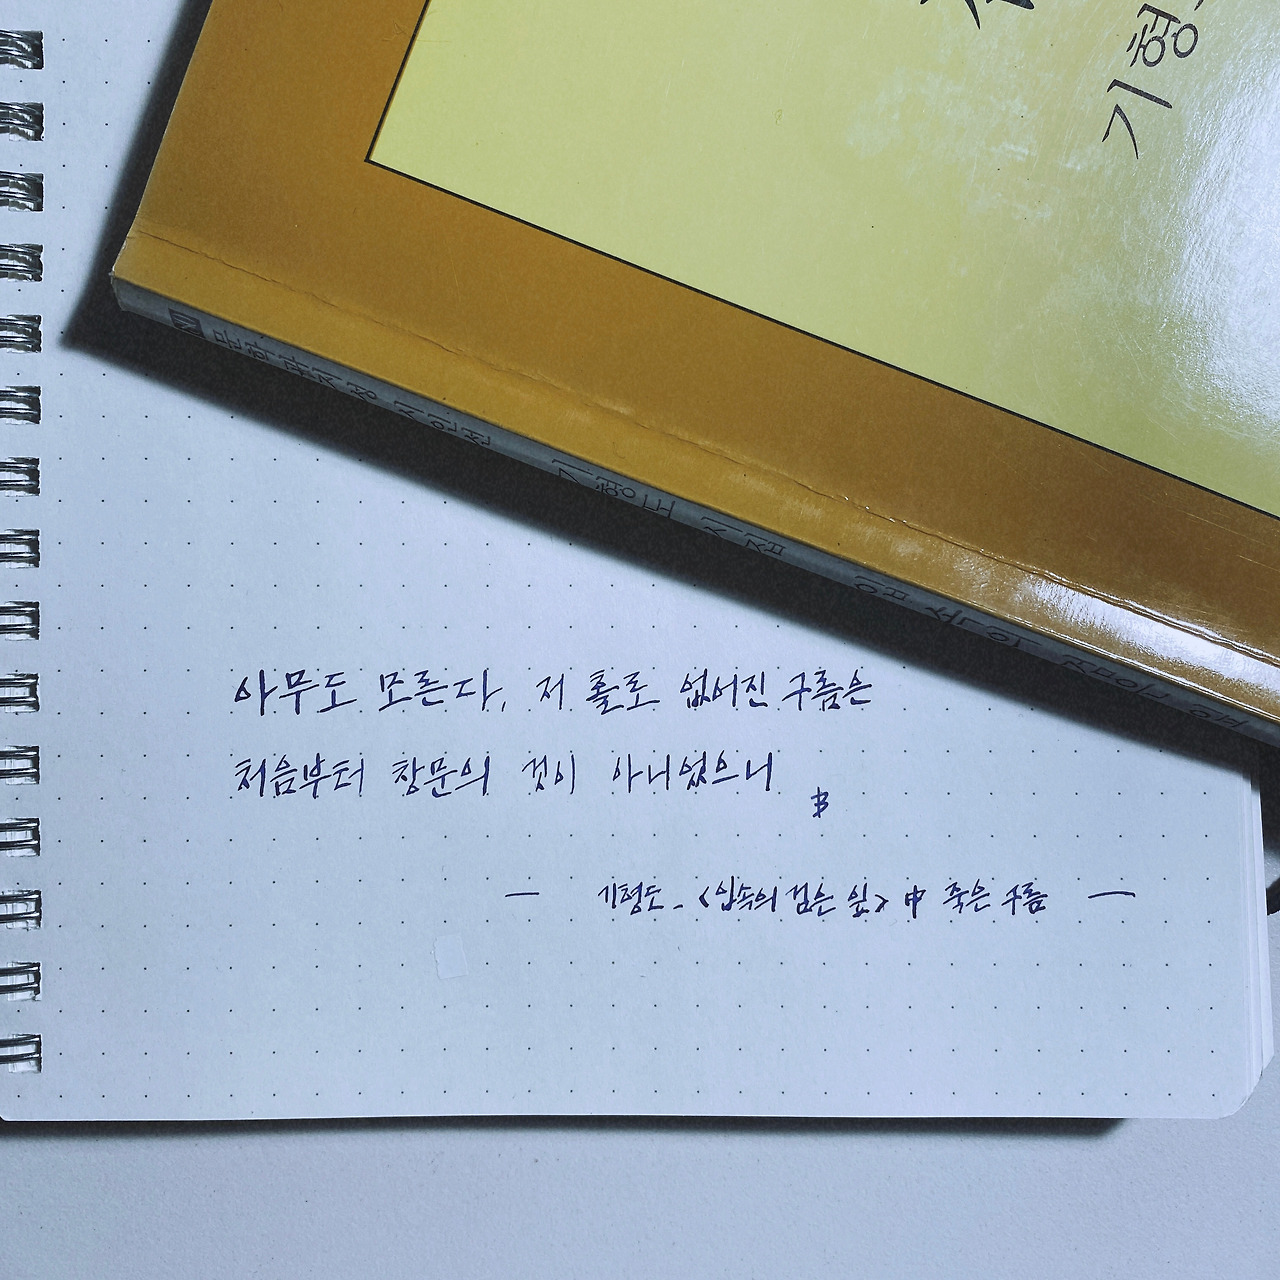 기형
문학과지성 시인선
기형도 시집
입 속의 검은
아무도 모른다, 저 홀로 없어진 구름은
처음부터 창문의 것이 아니었으니
— 기형도 - <입속의 검은 잎> 中 죽은 구름 —